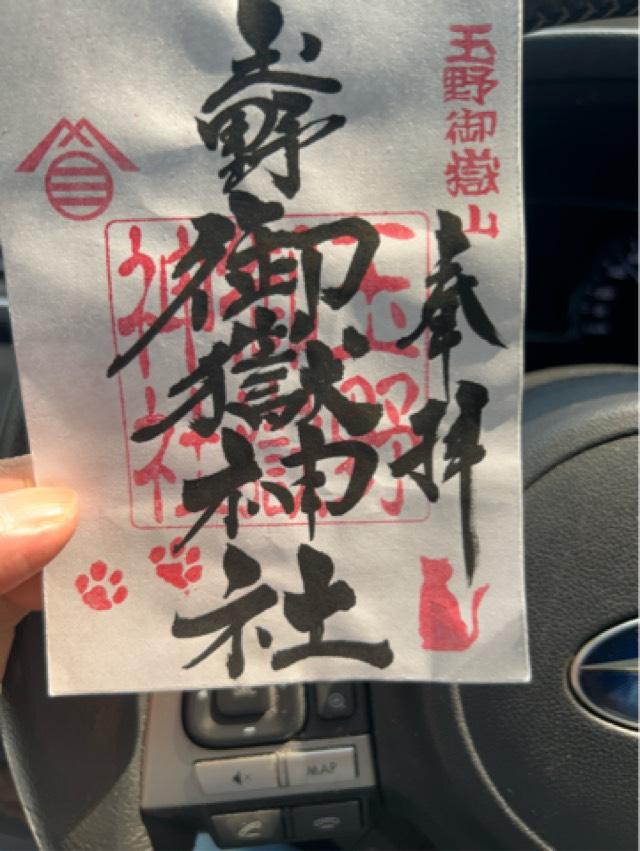 玉野御嶽山
奉拝
玉野
御嶽神社
玉野
御嶽
神社
MAP